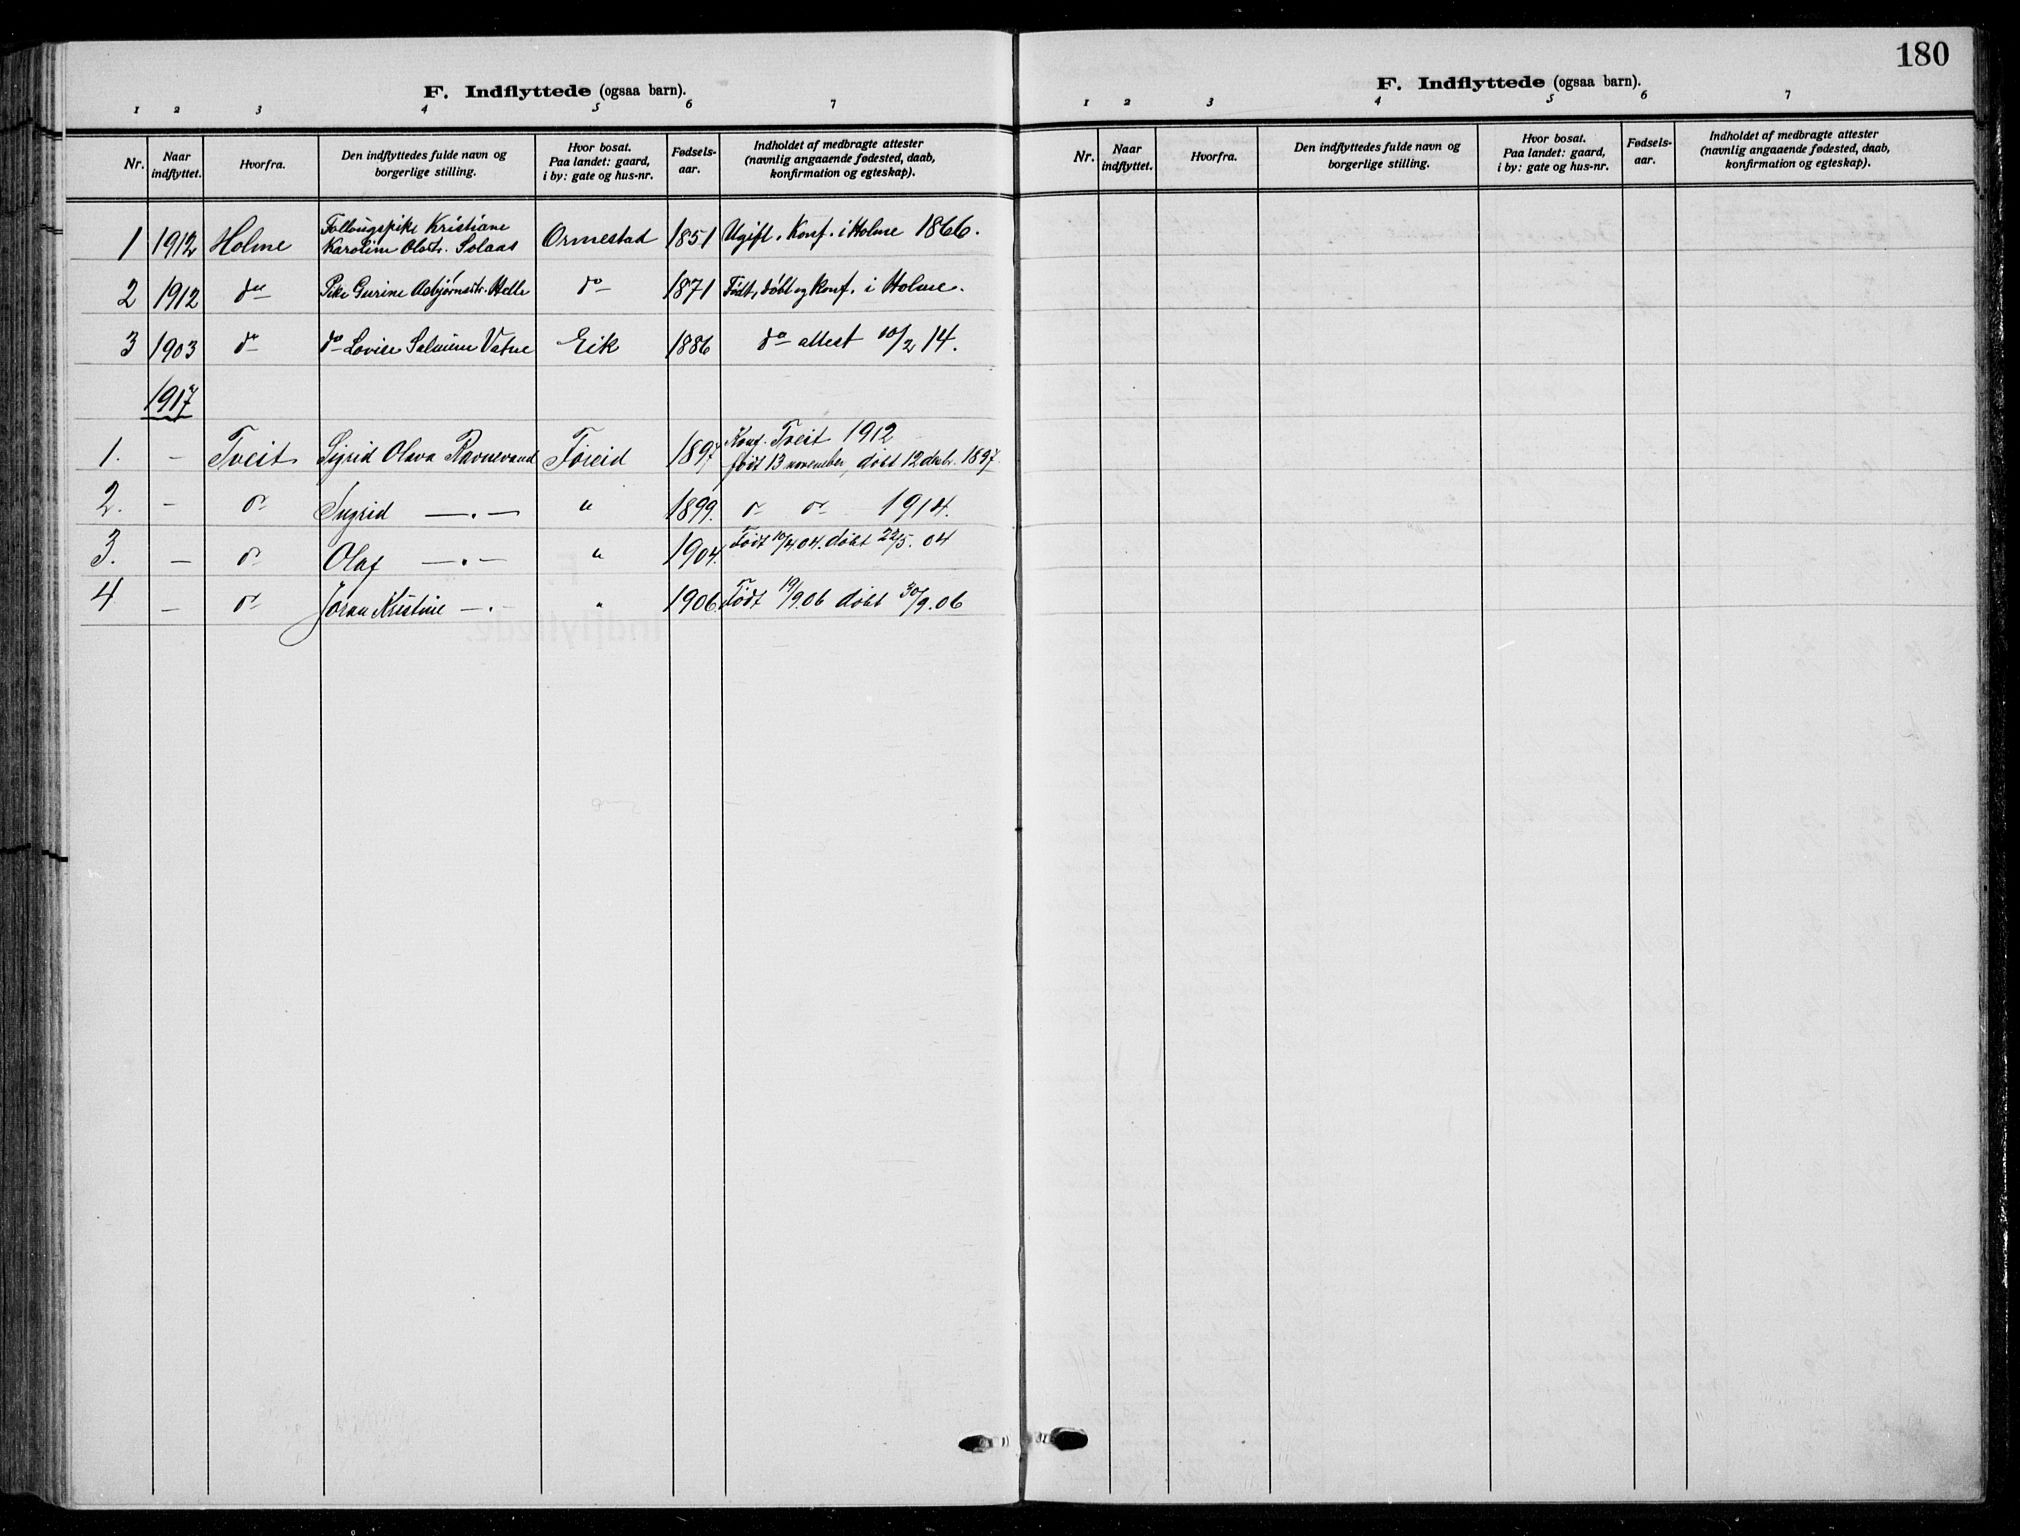 F. Indflyttede (ogsaa barn).
1 2 3 4 5 6 7
Nr. Naar indflyttet. Hvorfra. Den indflyttedes fulde navn og borgerlige stilling. Hvor bosat. Paa landet: gaard, i by: gate og hus-nr. Fødsels-aar. Indholdet af medbragte attester (navnlig angaaende fødested, daab, konfirmation og egteskap).
1 1912 Holme Follougspike Kristiane Karoline Olsdtr. Solaas Ormestad 1851 Ugift. Konf. i Holme 1866.
2 1912 do Pike Gurine Asbjørnsdtr. Helle do 1871 Født, døbt og konf. i Holme.
3 1903 do do Lovise Salmine Vatne Eik 1886 do attest 10/2 14.
1917
1. - Tveit Sigrid Olava Ravnevand Føreid 1897 Konf. Tveit 1912
født 13 november, døbt 12 dcbr. 1897.
2. - do Ingrid —.— " 1899. do do 1914.
3. - do Olaf —.— " 1904. Født 10/4 04. døbt 22/5. 04
4 - do Joran Kristine —.— " 1906. Født 19/9.06 døbt 30/9.06
180
F. Indflyttede (ogsaa barn).
1 2 3 4 5 6 7
Nr. Naar indflyttet. Hvorfra. Den indflyttedes fulde navn og borgerlige stilling. Hvor bosat. Paa landet: gaard, i by: gate og hus-nr. Fødsels-aar. Indholdet af medbragte attester (navnlig angaaende fødested, daab, konfirmation og egteskap).